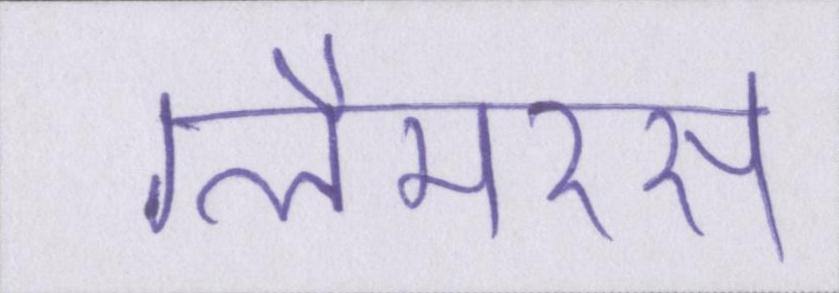 ग्लैमरस